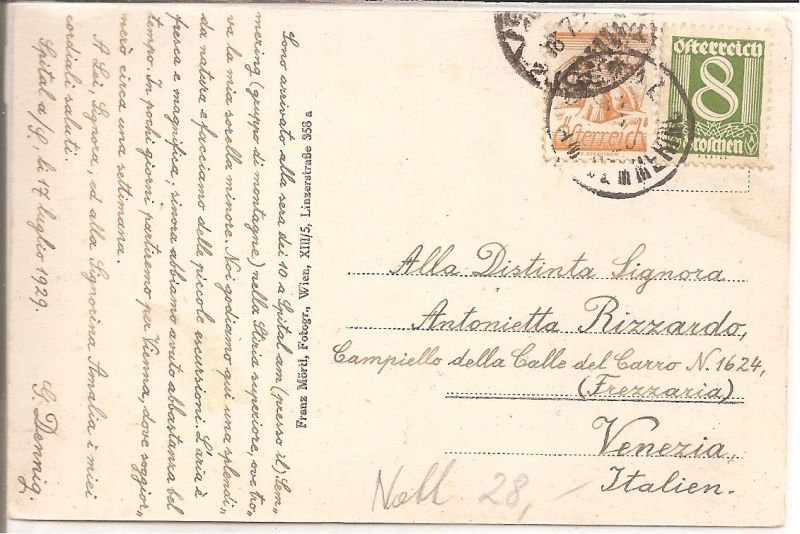 Sono arrivato alla sera dei 10 a Spital am (presso il) Sem„
mering (gruppo di montagne) nella Stiria superiore, ove tro„
va la mia sorella minore. Noi godiamo qui una splendi„
da natura e facciamo delle piccole escursioni. L'aria è
fresca e magnifica; sinora abbiamo avuto abbastanza bel
tempo. In pochi giorni partiremo per Vienna, dove soggior„
nerò circa una settimana.
A Lei, Signora, ed alla Signorina Amalia i miei
cordiali saluti.
Spital a/S., li 17 luglio 1929.
G. Dennig.
Franz Mörtl, Fotogr., Wien, XIII/5, Linzerstraße 358 a
Österreich
Österreich
8
Groschen
Alla Distinta Signora
Antonietta Rizzardo,
Campiello della Calle del Carro N. 1624,
(Frezzaria)
Venezia,
Italien.
28,